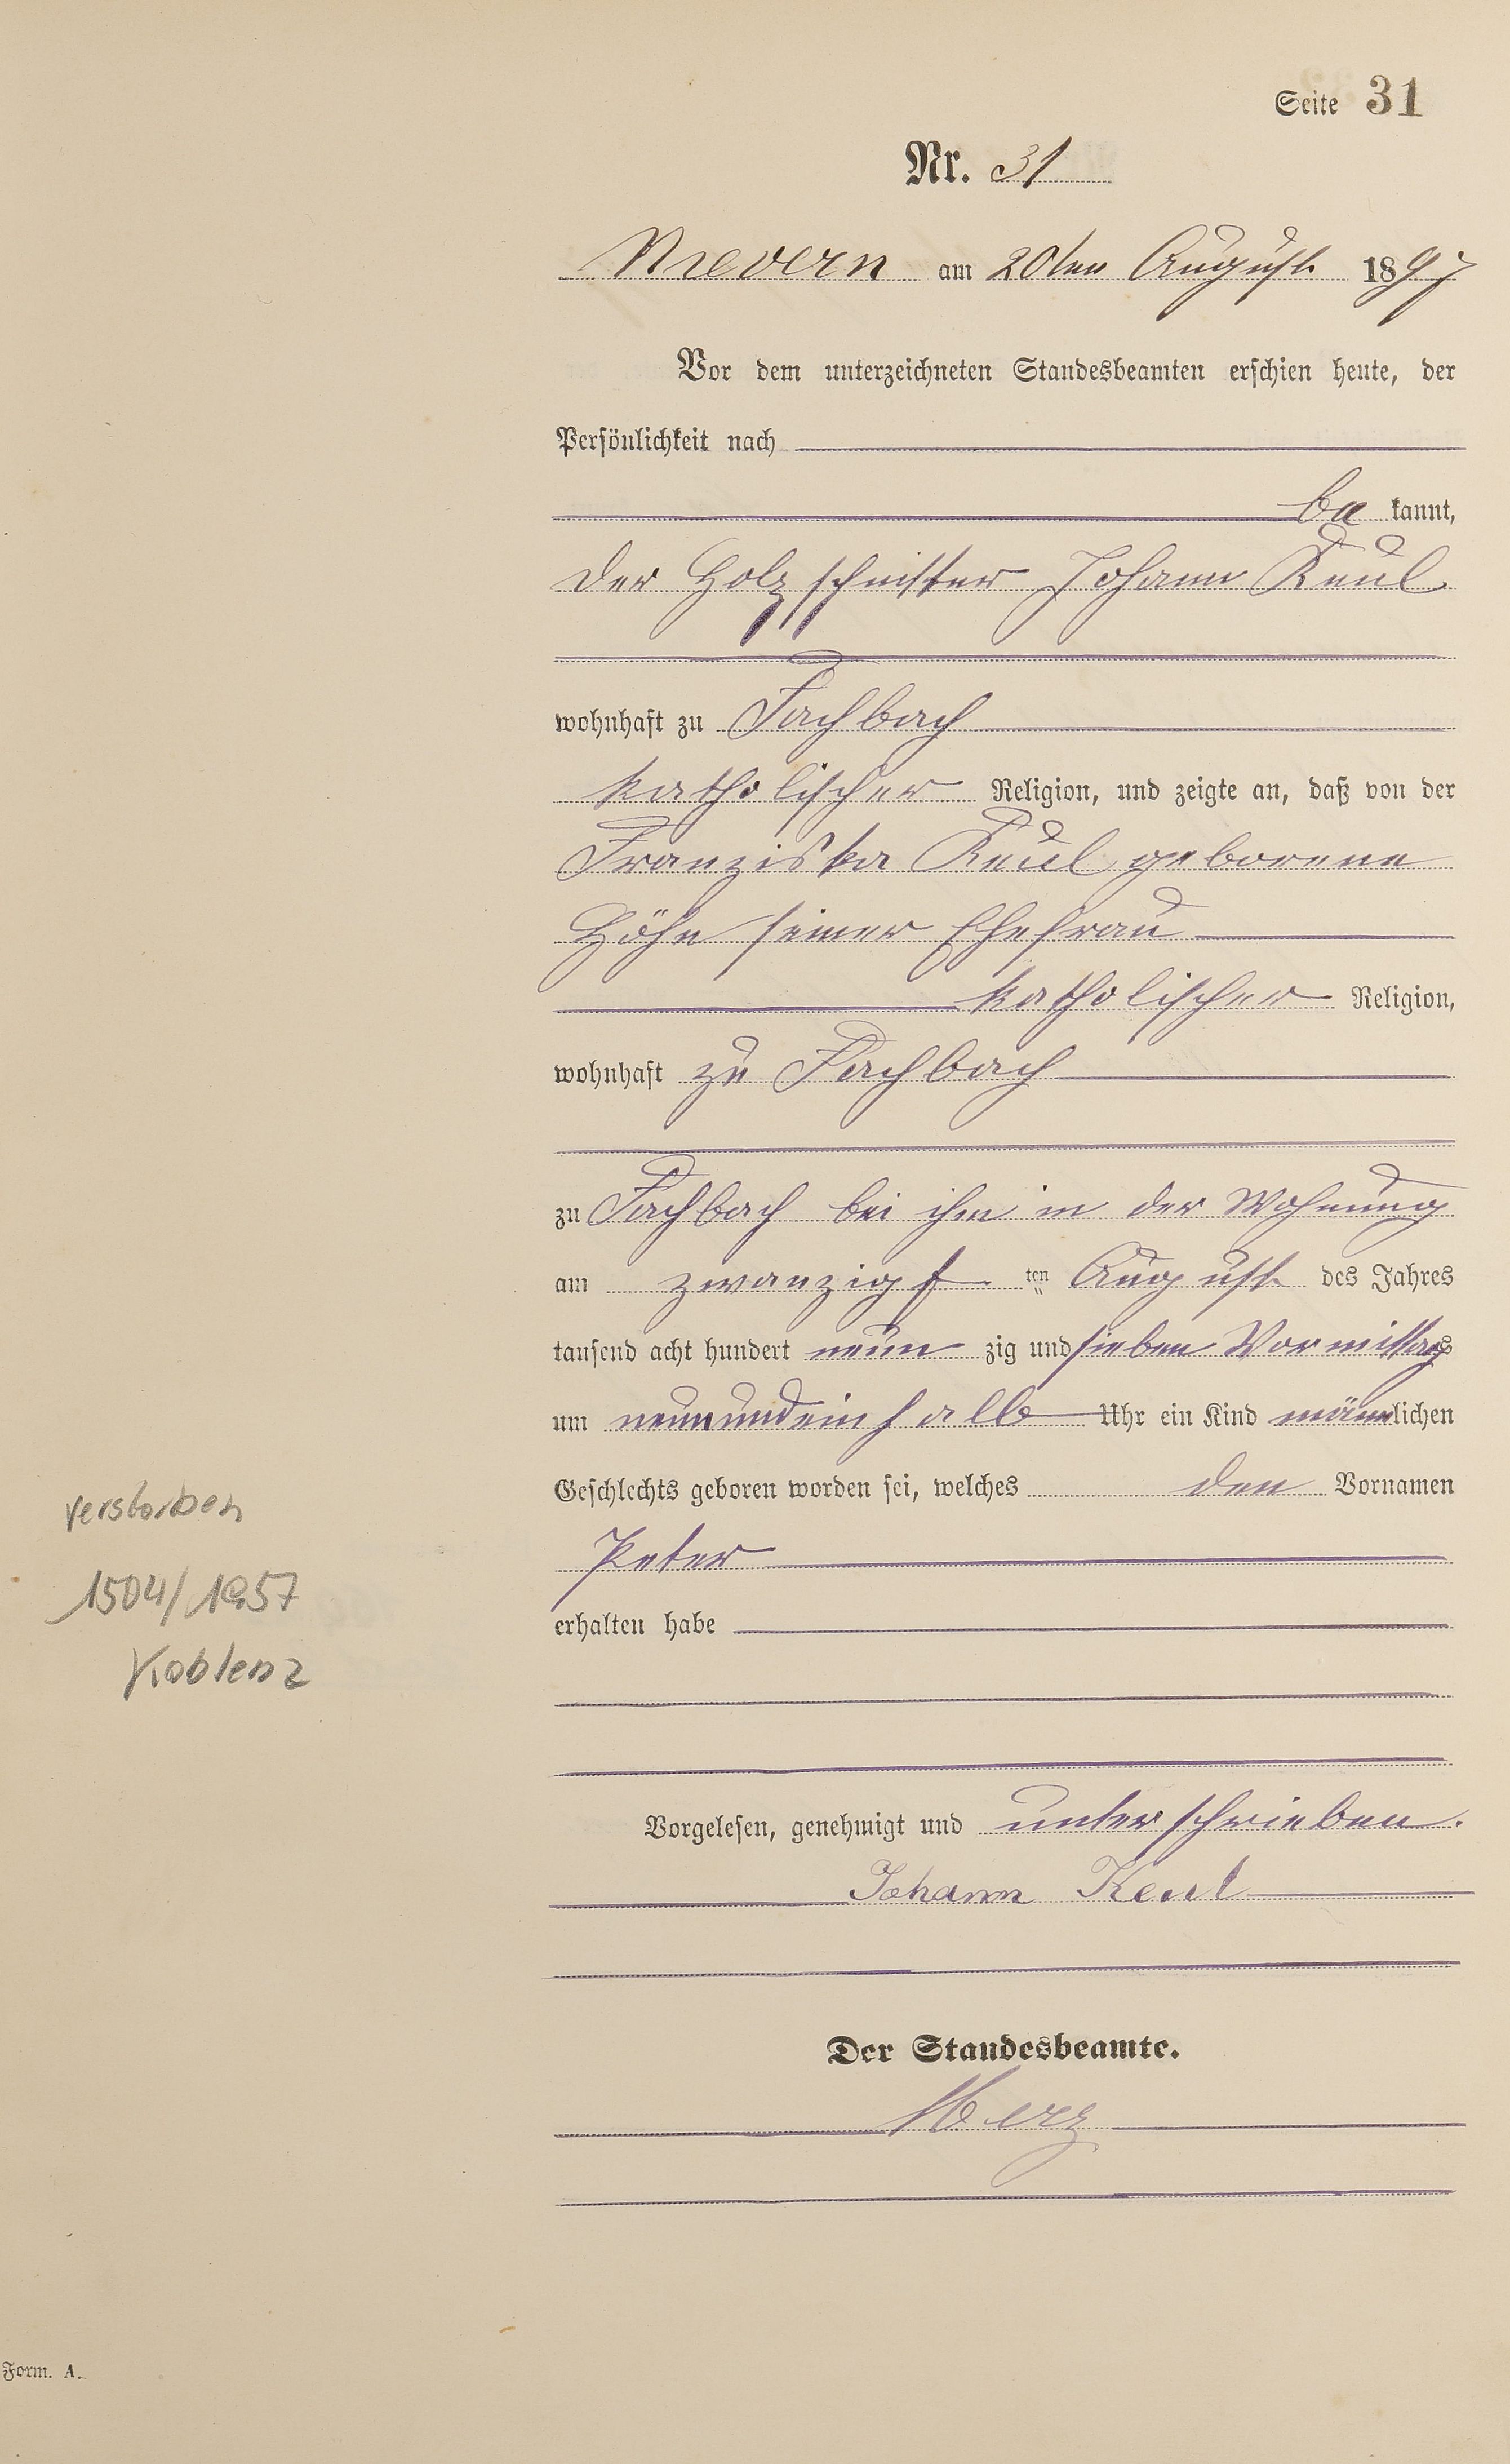 Seite 31
Nr. 31
Nievern am 20ten August 1897
Vor dem unterzeichneten Standesbeamten erschien heute, der
Persönlichkeit nach
be kannt,
der Holzschnitter Johann Keul
wohnhaft zu Fachbach
katholischer Religion, und zeigte an, daß von der
Franziska Keul geborene
Höhn seiner Ehefrau
katholischer Religion,
wohnhaft zu Fachbach
zu Fachbach bei ihm in der Wohnung
am zwanzigs ten August des Jahres
tausend acht hundert neun zig und sieben Vormittags
um neunundeinhalb Uhr ein Kind männlichen
Geschlechts geboren worden sei, welches den Vornamen
Peter
erhalten habe
verstorben
1504/1957
Koblenz
Vorgelesen, genehmigt und unterschrieben.
Johann Keul
Der Standesbeamte.
Form. A.